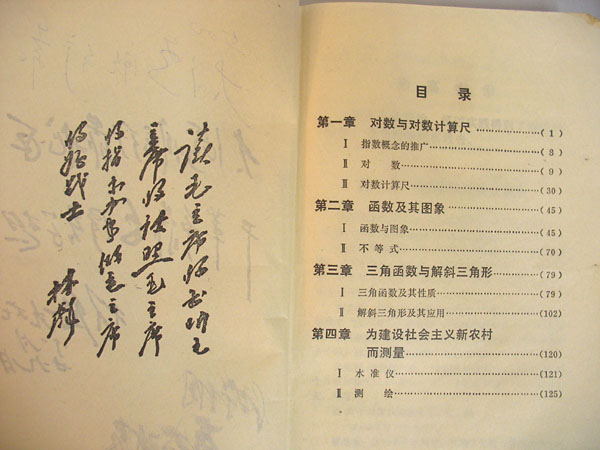 读毛主席的书听毛
主席的话照毛主席
的指示办事做毛主席
的好战士
林彪
目 录
第一章 对数与对数计算尺……………(1)
Ⅰ 指数概念的推广……………(8)
Ⅱ 对 数……………(9)
Ⅲ 对数计算尺……………(30)
第二章 函数及其图象……………(45)
Ⅰ 函数与图象……………(45)
Ⅱ 不 等 式……………(70)
第三章 三角函数与解斜三角形……………(79)
Ⅰ 三角函数及其性质……………(79)
Ⅱ 解斜三角形及其应用……………(102)
第四章 为建设社会主义新农村
而测量……………(120)
Ⅰ 水 准 仪……………(121)
Ⅱ 测 绘……………(125)